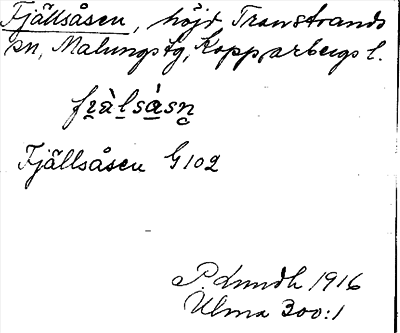 Fjällsåsen, höjd Transtrands
sn, Malungs tg, Kopparbergs l.
Fjällsåsen G102
P. Lundh 1916
Ulma 300:1